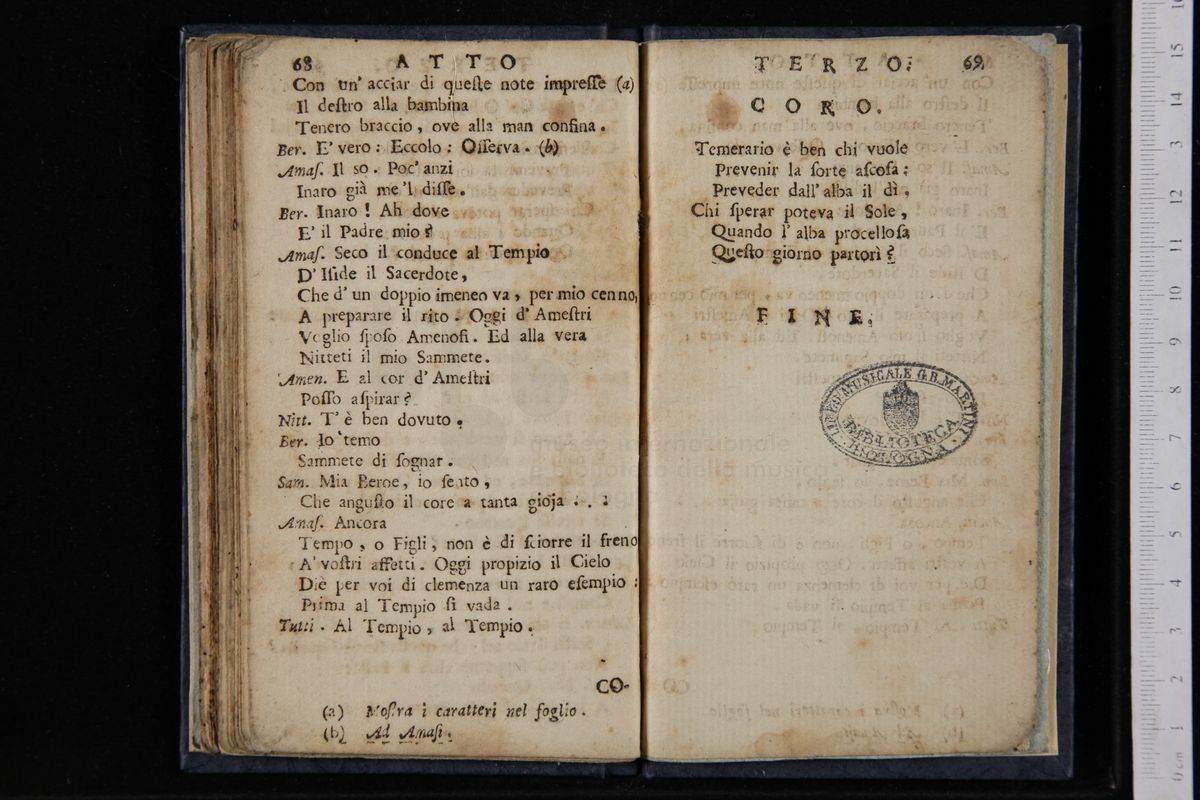 68 ATTO
Con un' acciar di queſte note impreſſe (a)
Il deſtro alla bambina
Tenero braccio, ove alla man confina.
Ber. E' vero: Eccolo: Oſſerva. (b)
Amaſ. Il so. Poc' anzi
Inaro già me 'l diſſe.
Ber. Inaro! Ah dove
E' il Padre mio?
Amaſ. Seco il conduce al Tempio
D' Iſide il Sacerdote,
Che d' un doppio imeneo va, per mio cenno,
A preparare il rito. Oggi d' Ameſtri
Voglio ſpoſo Amenofi. Ed alla vera
Nitteti il mio Sammete.
Amen. E al cor d' Ameſtri
Poſſo aſpirar?
Nitt. T' è ben dovuto.
Ber. Io temo
Sammete di ſognar.
Sam. Mia Beroe, io ſento,
Che anguſto il core a tanta gioja . . .
Amaſ. Ancora
Tempo, o Figli, non è di ſciorre il freno
A' voſtri affetti. Oggi propizio il Cielo
Diè per voi di clemenza un raro eſempio:
Prima al Tempio ſi vada.
Tutti. Al Tempio, al Tempio.
CO-
(a) Moſtra i caratteri nel foglio.
(b) Ad Amaſi.
TERZO. 69
CORO.
Temerario è ben chi vuole
Prevenir la ſorte aſcoſa:
Preveder dall' alba il dì,
Chi ſperar poteva il Sole,
Quando l' alba procelloſa
Queſto giorno partorì?
FINE.
LICEO MUSICALE G.B. MARTINI
BIBLIOTECA
BOLOGNA
museo internazionale
e biblioteca della musica